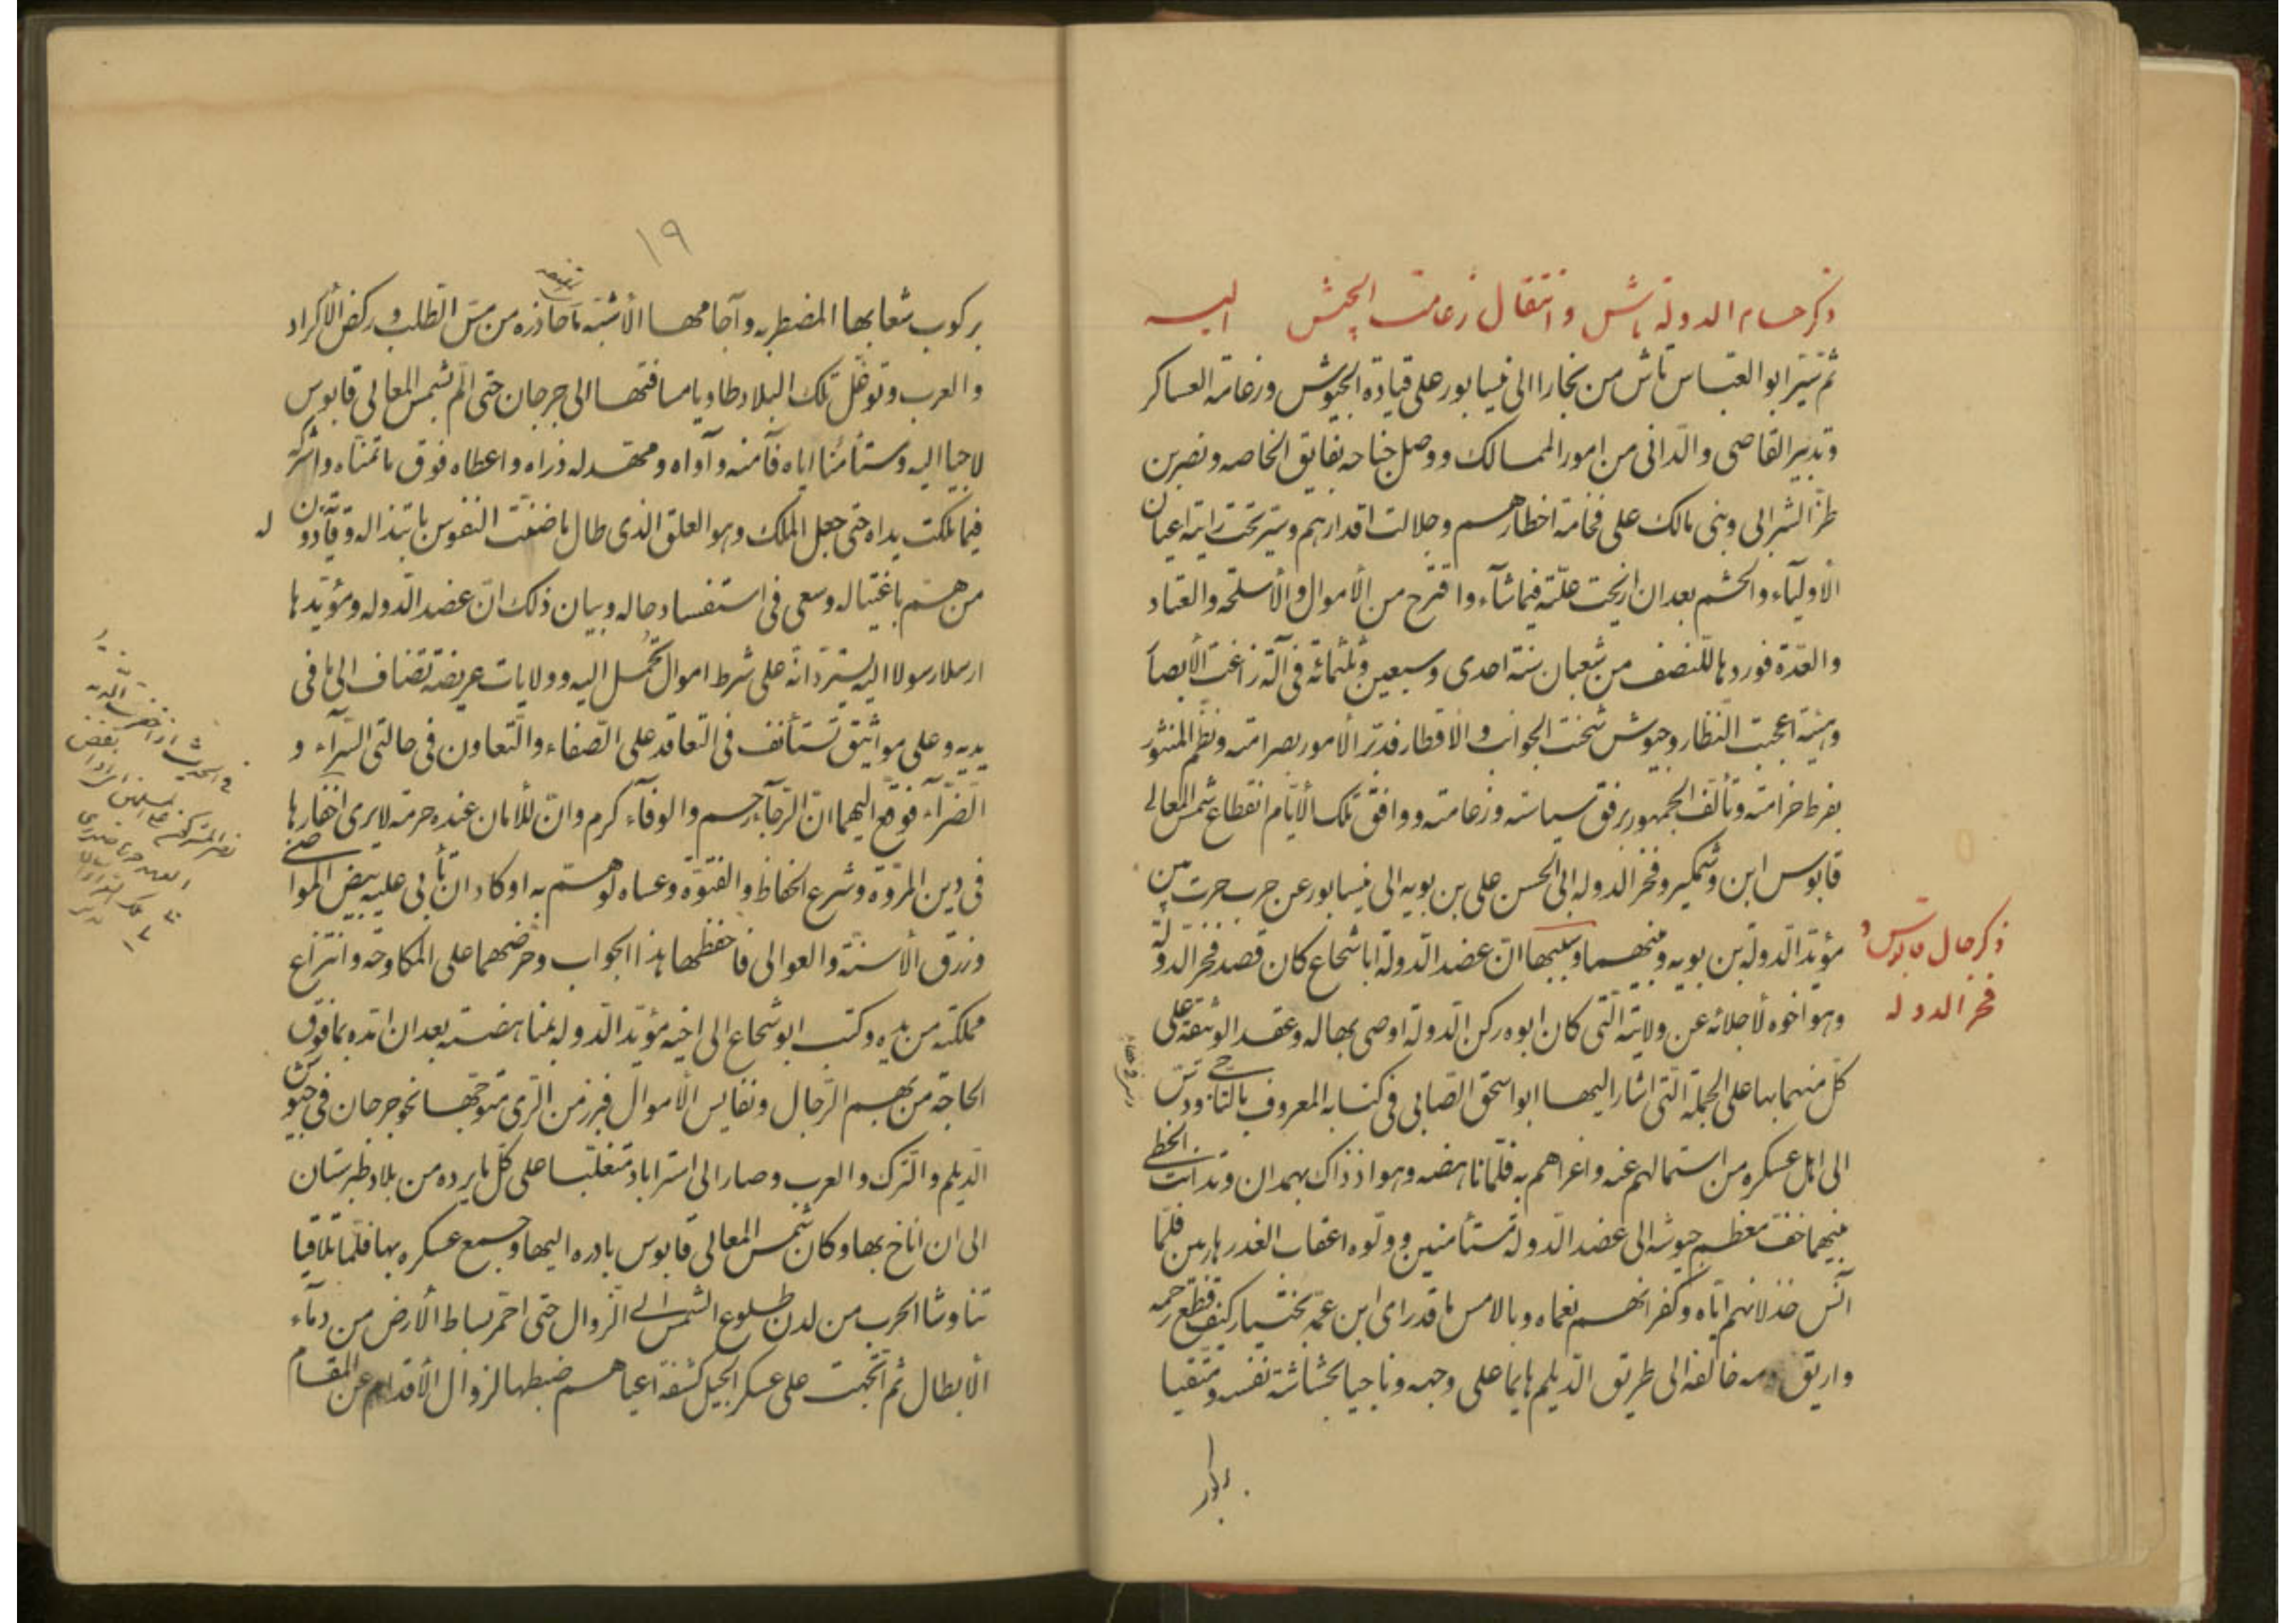 ذكر حسام الدولة تاش وانتقال زعامت الجيش اليه
ثم سير ابو العباس تاش من بخارا الى نيسابور على قيادة الجيوش وزعامة العساكر
وتدبير القاصى والدانى من امور الممالك ووصل جناحه بفايق الخاصه ونصر بن
طز الشرابى وبنى مالك على فخامة اخطارهم وجلالت اقدارهم وسير تحت رايته اعيان
الأولياء والحشم بعد ان ازيحت علته فيما شآء واقترح من الأموال والأسلحه والعتاد
والعدة فوردها للنصف من شعبان سنة احدى وسبعين وثلثمائة فى آلة زاغت الأبصار
وهيئة اعجبت النظار وجيوش شحنت الجوانب والأقطار فدبر الأمور بصرامته ونظم المنثور
بفرط حزامته وتألف الجمهور برفق سياسته وزعامته ووافق تلك الأيام انقطاع شمس المعالى
قابوس ابن وشمكير وفخر الدوله ابى الحسن على بن بويه الى نيسابور عن حرب جرت بين
مؤيد الدولة بن بويه وبينهما وسببها ان عضد الدولة ابا شجاع كان قصد فخر الدولة
ذكر حال قابوس و
فخر الدوله
وهو اخوه لأجلائه عن ولايته التى كان ابوه ركن الدولة اوصى بها له وعقد الوثيقة على
كل منهما بها على الجملة التى اشار اليها ابو اسحق الصابى فى كتابه المعروف بالتاجى ودس
الى اهل عسكره من استمالهم عنه واغراهم به فلما ناهضه وهو اذ ذاك بهمدان وتدانت الخطى
بينهما خف معظم جيوشه الى عضد الدولة مستأمنين وولوه اعقاب الغدر هاربين فلما
آنس خذلانهم اياه وكفرانهم نعماه وبالامس ما قد راى ابن عمه بختيار كيف قطع رحمه
واريق دمه خالفه الى طريق الديلم هايما على وجهه وناجيا بحشاشة نفسه ومتقيا
بركوب
١٩
بركوب شعابها المضطربه وآجامها الأشبه ما حاذره من مس الطلب وركض الأكراد
والعرب وتوغل تلك البلاد طاويا مسافتها الى جرجان حتى الم بشمس المعالى قابوس
لاجيا اليه ومستأمنا اياه فآمنه وآواه ومهد له ذراه واعطاه فوق ما تمناه واشركه
فيما ملكت يداه حتى جعل الملك وهو العلق الذى طال ما ضنت النفوس بابتذاله وقآدون له
من هم باغتياله وسعى فى استفساد حاله وبيان ذلك ان عضد الدوله ومؤيدها
ارسلا رسولا اليه يستردانه على شرط اموال تحمل اليه وولايات عريضة تضاف الى ما فى
يديه وعلى مواثيق تستأنف فى التعاقد على الصفاء والتعاون فى حالتى السرآء و
الضرآء فوقع اليهما ان الرجآء رحم والوفآء كرم وان للأمان عنده حرمة لا يرى اخفارها
فى دين المروة وشرع الحفاظ والفتوة وعساه لو هم به او كاد ان تأبى عليه بيض المواضى
وزرق الأسنة والعوالى فأحفظهما هذا الجواب وحرضهما على المكاوحة وانتزاع
مملكته من يديه وكتب ابو شجاع الى اخيه مؤيد الدوله بمناهضته بعد ان امده بما فوق
الحاجة من بهم الرجال ونفايس الأموال فبرز من الرى متوجها نحو جرجان فى جيوش
الديلم والترك والعرب وصار الى استراباد متغلبا على كل ما يرده من بلاد طبرستان
الى ان اناخ بها وكان شمس المعالى قابوس بادره اليها وجمع عسكره بها فلما تلاقيا
تناوشا الحرب من لدن طلوع الشمس الى الزوال حتى احمر بساط الأرض من دمآء
الأبطال ثم اتجهت على عسكر الجيل كشفة اعياهم ضبطها لزوال الأقدام عن المقام